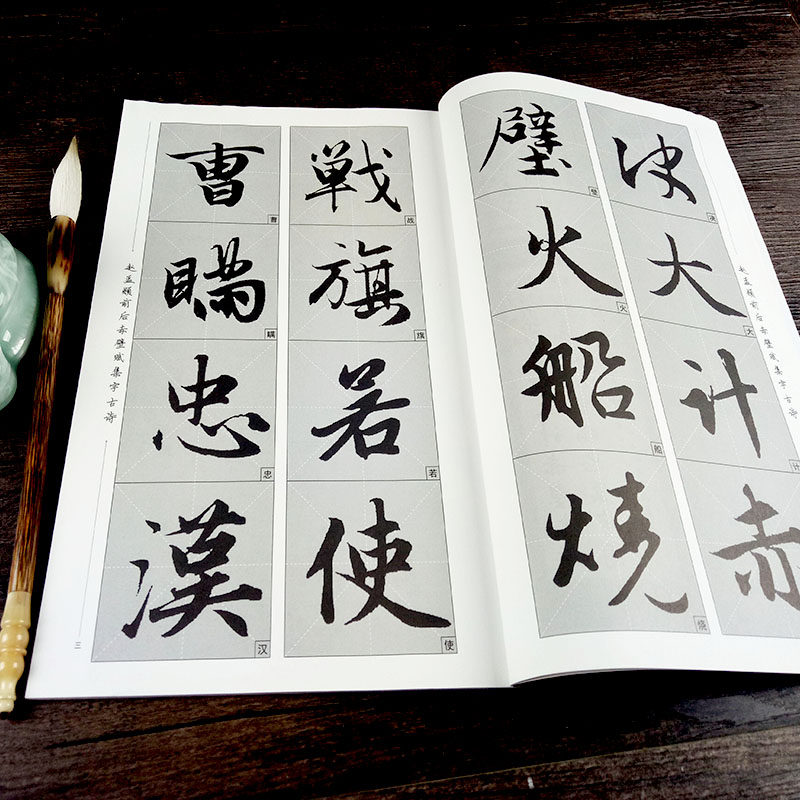 赵孟頫前后赤壁赋集字古诗
决大计赤
决
大
计
壁火船燒
壁
火
船
烧
戦旗若使
战
旗
若
使
曹瞞忠漢
曹
瞒
忠
汉
赵孟頫前后赤壁赋集字古诗
三